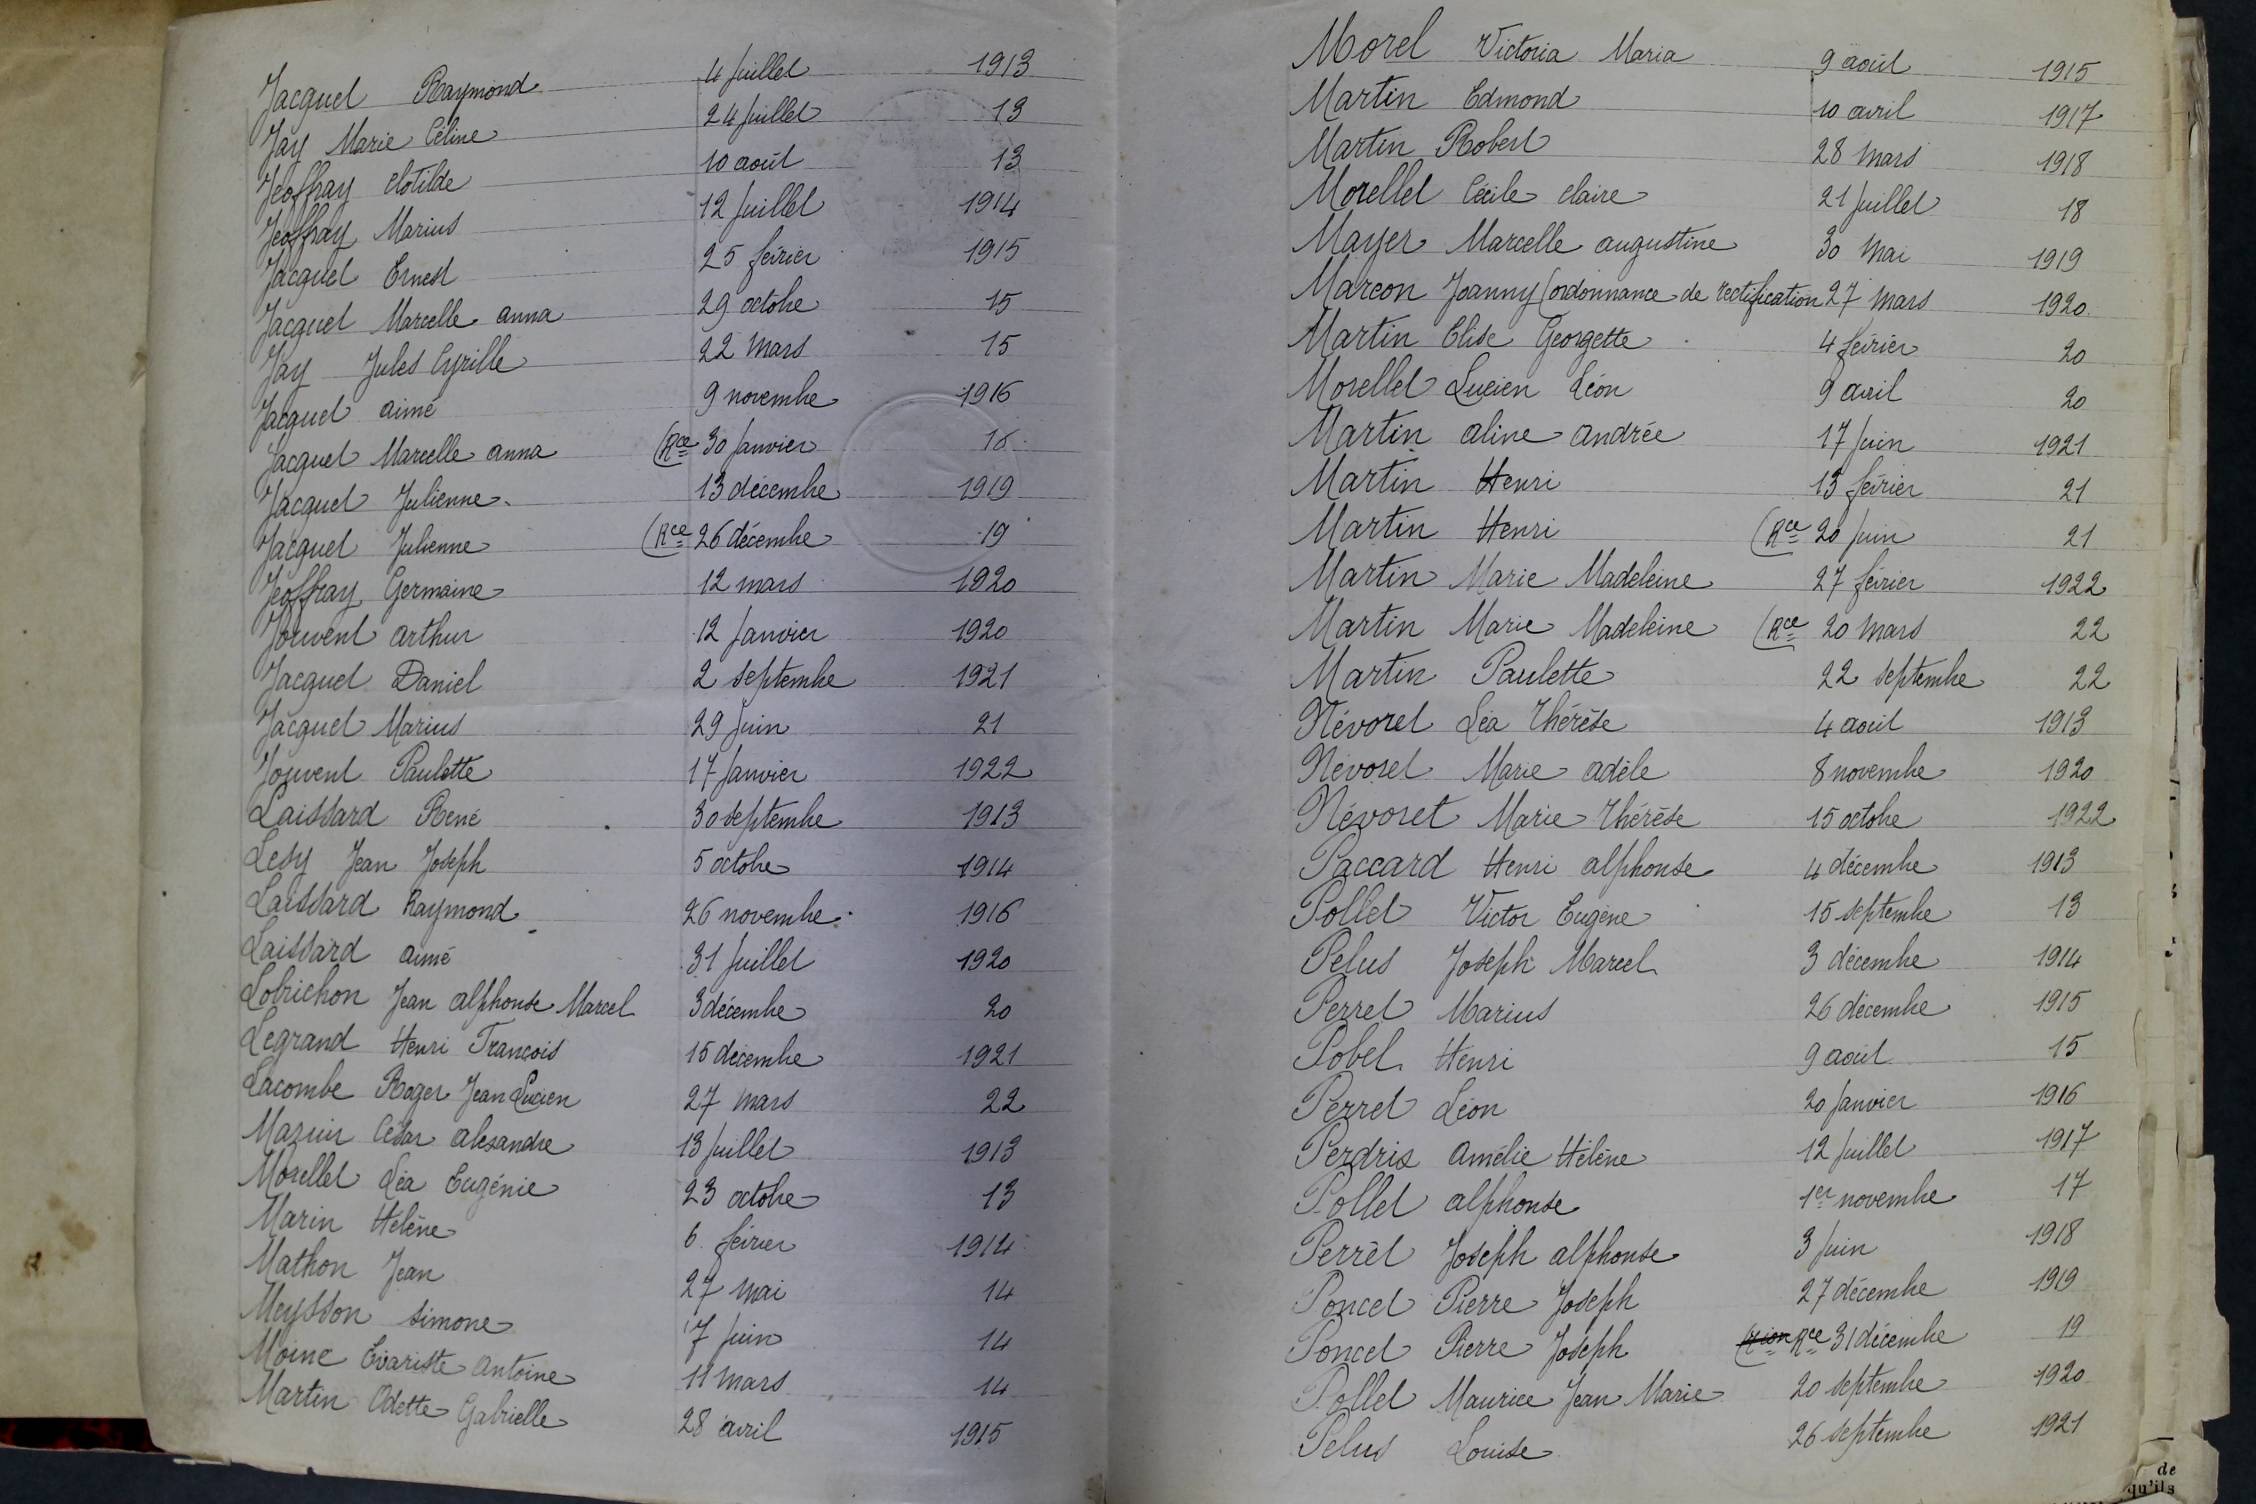 Jacquet Raymond 4 Juillet 1913
Jay Marie Céline 24 Juillet 13
Jeoffray Clotilde 10 août 13
Jeoffray Marius 12 Juillet 1914
Jacquet Ernest 25 février 1915
Jacquet Marcelle anna 29 octobre 15
Jay Jules Cyrille 22 Mars 15
Jacquet aimé 9 novembre 1916
Jacquet Marcelle anna (Rce 30 Janvier 16
Jacquet Julienne 13 décembre 1919
Jacquet Julienne (Rce 26 décembre 19
Jeoffray Germaine 12 mars 1920
Jouvent arthur 12 Janvier 1920
Jacquet Daniel 2 Septembre 1921
Jacquet Marius 29 Juin 21
Jouvent Paulette 17 Janvier 1922
Laissard René 30 septembre 1913
Lesy Jean Joseph 5 octobre 1914
Laissard Raymond 26 novembre 1916
Laissard aimé 31 Juillet 1920
Lobrichon Jean alphonse Marcel 3 décembre 20
Legrand Henri François 15 décembre 1921
Lacombe Roger Jean Lucien 27 mars 22
César alexandre 13 Juillet 1913
Morellet Léa Eugénie 23 octobre 13
Marin Hélène 6 février 1914
Mathon Jean 27 mai 14
Meysson Simone 7 Juin 14
Moine Evariste Antoine 11 mars 14
Martin Odette Gabrielle 28 avril 1915
Morel Victoria Maria 9 août 1915
Martin Edmond 10 avril 1917
Martin Robert 28 Mars 1918
Morellet Cécile Claire 21 Juillet 18
Mayer Marcelle augustine 30 Mai 1919
Marcon Joanny (ordonnance de rectification 27 Mars 1920
Martin Elise Georgette 4 février 20
Morellet Lucien Léon 9 avril 20
Martin aline andrée 17 Juin 1921
Martin Henri 13 février 21
Martin Henri (Rce 20 Juin 21
Martin Marie Madeleine 27 février 1922
Martin Marie Madeleine (Rce 20 Mars 22
Martin Paulette 22 septembre 22
Névoret Léa Thérèse 4 août 1913
Névoret Marie adèle 8 novembre 1920
Névoret Marie Thérèse 15 octobre 1922
Paccard Henri alphonse 4 décembre 1913
Pollet Victor Eugène 15 septembre 13
Pelus Joseph Marcel 3 décembre 1914
Perret Marius 26 décembre 1915
Pobel Henri 9 août 15
Perret Léon 20 Janvier 1916
Perdrix Amélie Hélène 12 Juillet 1917
Pollet alphonse 1er novembre 17
Perret Joseph alphonse 3 Juin 1918
Poncet Pierre Joseph 27 décembre 1919
Poncet Pierre Joseph Rce 31 décembre 19
Pollet Maurice Jean Marie 20 septembre 1920
Pelus Louise 26 septembre 1921
de
qu'ils